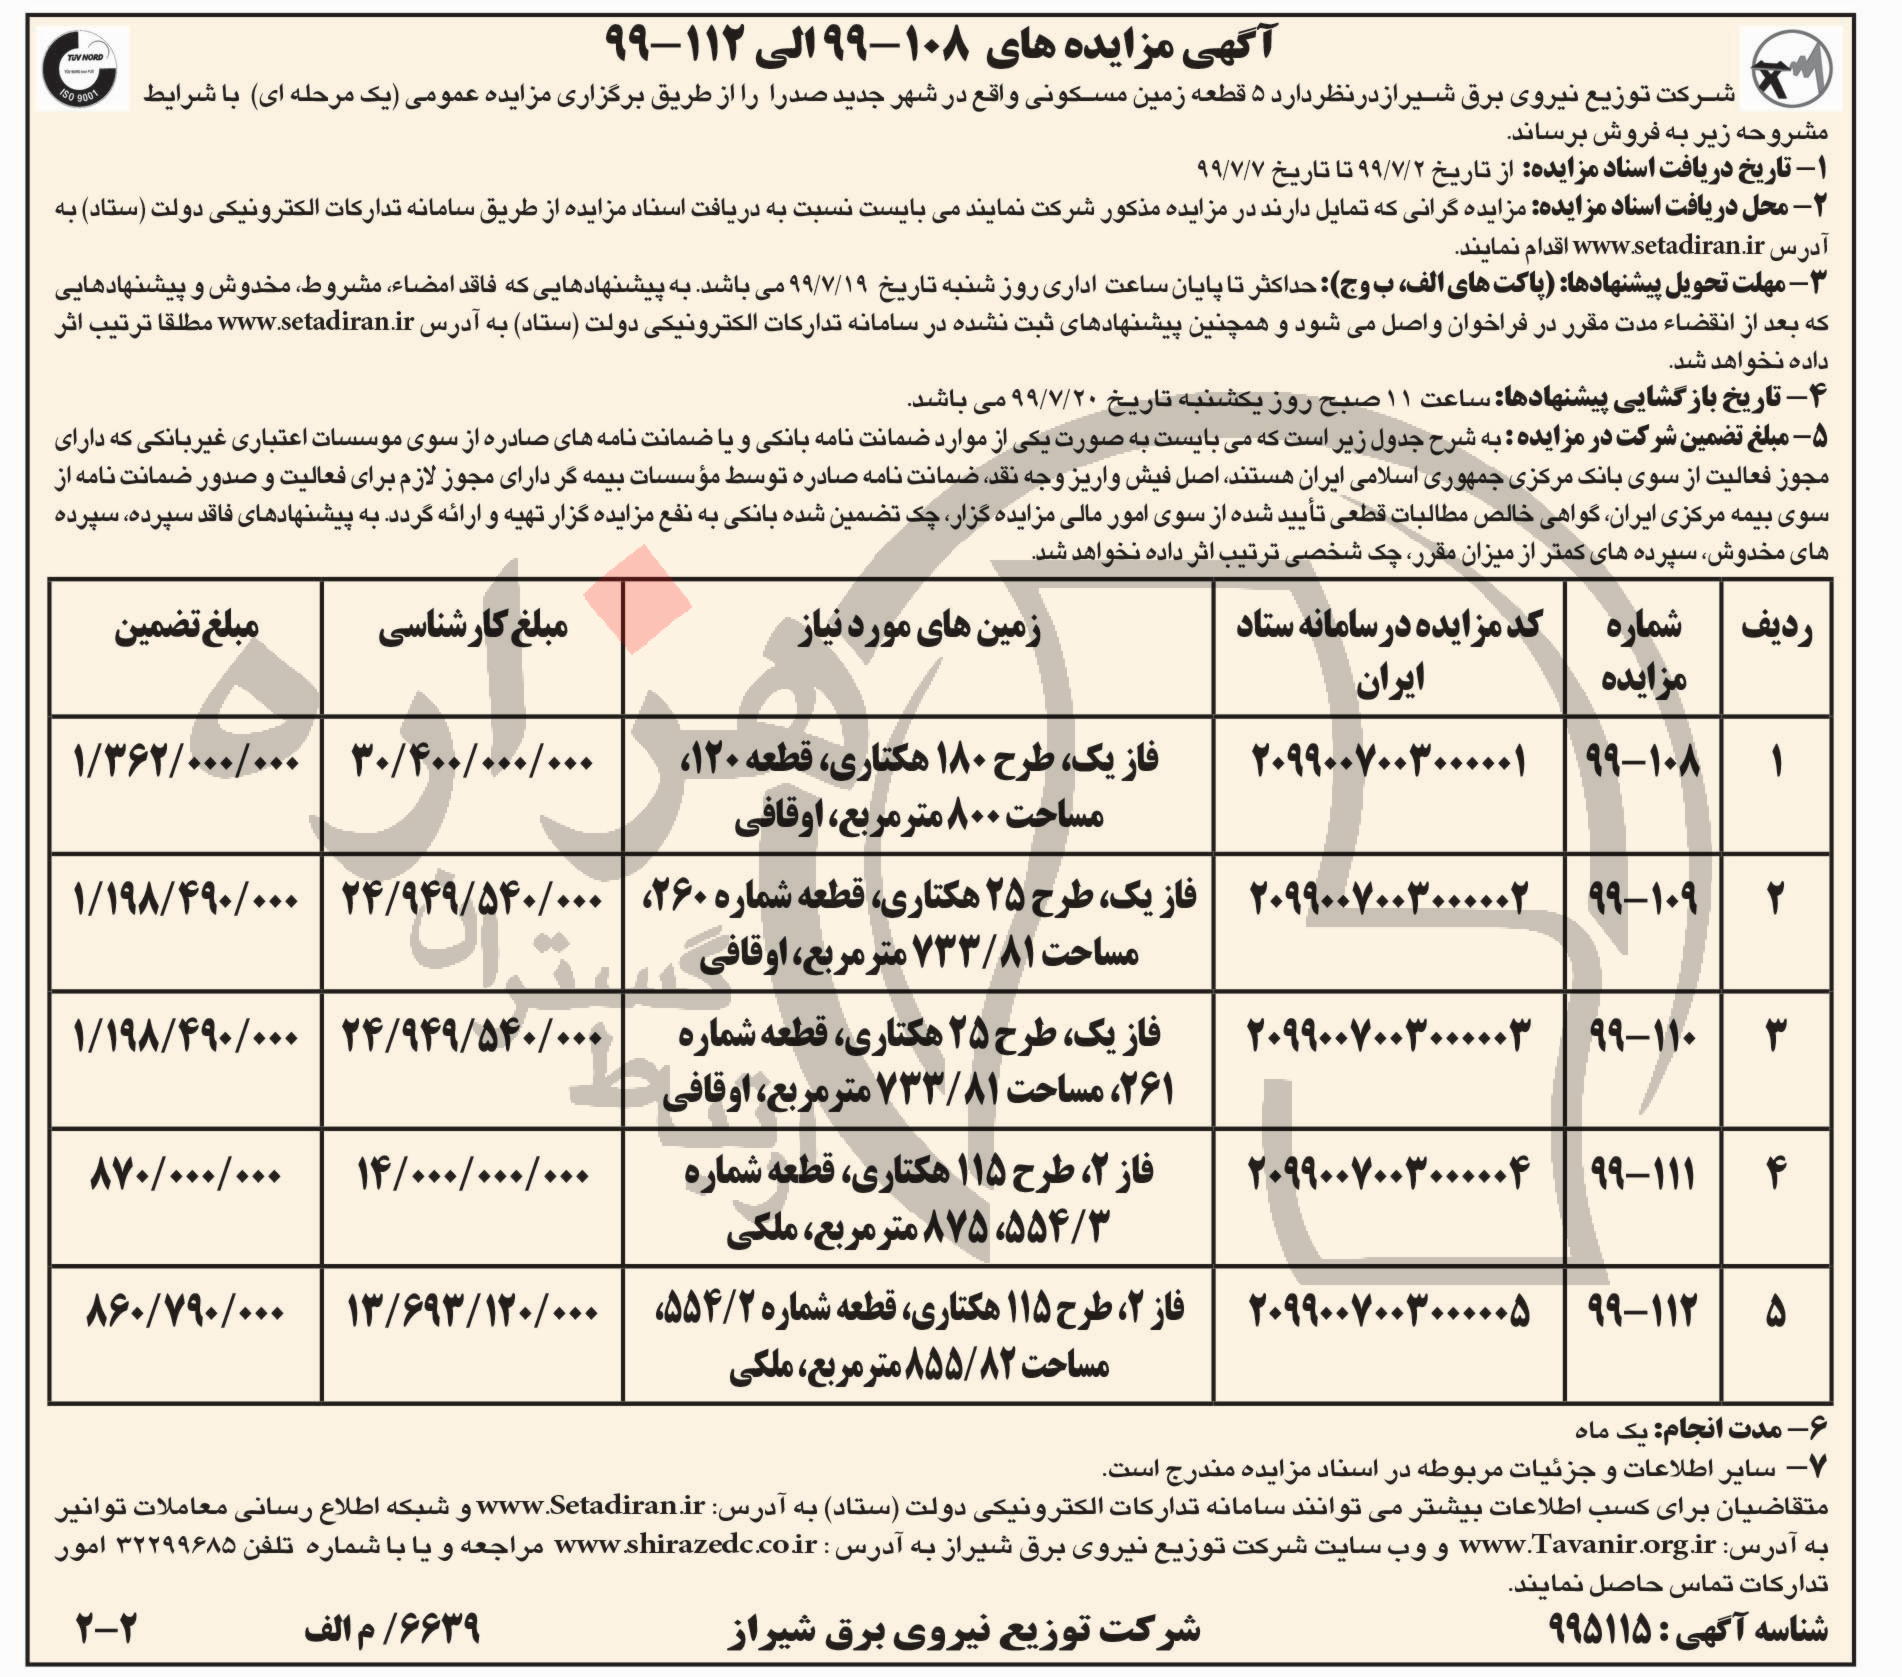 آگهی مزایده های ۱۰۸-۹۹ الی ۱۱۲-۹۹
TÜV NORD
ISO 9001
شرکت توزیع نیروی برق شیراز درنظر دارد ۵ قطعه زمین مسکونی واقع در شهر جدید صدرا را از طریق برگزاری مزایده عمومی (یک مرحله ای) با شرایط
مشروحه زیر به فروش برساند.
۱- تاریخ دریافت اسناد مزایده: از تاریخ ۹۹/۷/۲ تا تاریخ ۹۹/۷/۷
۲- محل دریافت اسناد مزایده: مزایده گرانی که تمایل دارند در مزایده مذکور شرکت نمایند می بایست نسبت به دریافت اسناد مزایده از طریق سامانه تدارکات الکترونیکی دولت (ستاد) به
آدرس www.setadiran.ir اقدام نمایند.
۳- مهلت تحویل پیشنهادها: (پاکت های الف، ب وج): حداکثر تا پایان ساعت اداری روز شنبه تاریخ ۹۹/۷/۱۹ می باشد. به پیشنهادهایی که فاقد امضاء، مشروط، مخدوش و پیشنهادهایی
که بعد از انقضاء مدت مقرر در فراخوان واصل می شود و همچنین پیشنهادهای ثبت نشده در سامانه تدارکات الکترونیکی دولت (ستاد) به آدرس www.setadiran.ir مطلقا ترتیب اثر
داده نخواهد شد.
۴- تاریخ بازگشایی پیشنهادها: ساعت ۱۱ صبح روز یکشنبه تاریخ ۹۹/۷/۲۰ می باشد.
۵- مبلغ تضمین شرکت در مزایده : به شرح جدول زیر است که می بایست به صورت یکی از موارد ضمانت نامه بانکی و یا ضمانت نامه های صادره از سوی موسسات اعتباری غیربانکی که دارای
مجوز فعالیت از سوی بانک مرکزی جمهوری اسلامی ایران هستند، اصل فیش واریز وجه نقد، ضمانت نامه صادره توسط مؤسسات بیمه گر دارای مجوز لازم برای فعالیت و صدور ضمانت نامه از
سوی بیمه مرکزی ایران، گواهی خالص مطالبات قطعی تأیید شده از سوی امور مالی مزایده گزار، چک تضمین شده بانکی به نفع مزایده گزار تهیه و ارائه گردد. به پیشنهادهای فاقد سپرده، سپرده
های مخدوش، سپرده های کمتر از میزان مقرر، چک شخصی ترتیب اثر داده نخواهد شد.
ردیف | شماره مزایده | کد مزایده در سامانه ستاد ایران | زمین های مورد نیاز | مبلغ کارشناسی | مبلغ تضمین
۱ | ۹۹-۱۰۸ | ۲۰۹۹۰۰۷۰۰۳۰۰۰۰۰۱ | فاز یک، طرح ۱۸۰ هکتاری، قطعه ۱۲۰، مساحت ۸۰۰ مترمربع، اوقافی | ۳۰/۴۰۰/۰۰۰/۰۰۰ | ۱/۳۶۲/۰۰۰/۰۰۰
۲ | ۹۹-۱۰۹ | ۲۰۹۹۰۰۷۰۰۳۰۰۰۰۰۲ | فاز یک، طرح ۲۵ هکتاری، قطعه شماره ۲۶۰، مساحت ۷۳۳/۸۱ مترمربع، اوقافی | ۲۴/۹۴۹/۵۴۰/۰۰۰ | ۱/۱۹۸/۴۹۰/۰۰۰
۳ | ۹۹-۱۱۰ | ۲۰۹۹۰۰۷۰۰۳۰۰۰۰۰۳ | فاز یک، طرح ۲۵ هکتاری، قطعه شماره ۲۶۱، مساحت ۷۳۳/۸۱ مترمربع، اوقافی | ۲۴/۹۴۹/۵۴۰/۰۰۰ | ۱/۱۹۸/۴۹۰/۰۰۰
۴ | ۹۹-۱۱۱ | ۲۰۹۹۰۰۷۰۰۳۰۰۰۰۰۴ | فاز ۲، طرح ۱۱۵ هکتاری، قطعه شماره ۵۵۴/۳، ۸۷۵ مترمربع، ملکی | ۱۴/۰۰۰/۰۰۰/۰۰۰ | ۸۷۰/۰۰۰/۰۰۰
۵ | ۹۹-۱۱۲ | ۲۰۹۹۰۰۷۰۰۳۰۰۰۰۰۵ | فاز ۲، طرح ۱۱۵ هکتاری، قطعه شماره ۵۵۴/۲، مساحت ۸۵۵/۸۲ مترمربع، ملکی | ۱۳/۶۹۳/۱۲۰/۰۰۰ | ۸۶۰/۷۹۰/۰۰۰
هزاره
گستران
ارتباط
۶- مدت انجام: یک ماه
۷- سایر اطلاعات و جزئیات مربوطه در اسناد مزایده مندرج است.
متقاضیان برای کسب اطلاعات بیشتر می توانند سامانه تدارکات الکترونیکی دولت (ستاد) به آدرس: www.Setadiran.ir و شبکه اطلاع رسانی معاملات توانیر
به آدرس: www.Tavanir.org.ir و وب سایت شرکت توزیع نیروی برق شیراز به آدرس : www.shirazedc.co.ir مراجعه و یا با شماره تلفن ۳۲۲۹۹۶۸۵ امور
تدارکات تماس حاصل نمایند.
شناسه آگهی : ۹۹۵۱۱۵ شرکت توزیع نیروی برق شیراز ۶۶۳۹/ م الف ۲-۲